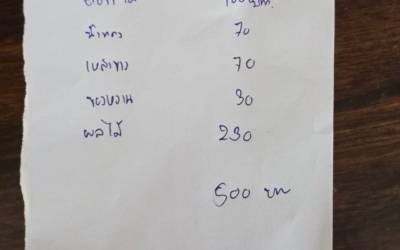 100 บาท
น้ำแดง 70
เหล้าขาว 70
ของหวาน 30
ผลไม้ 230
500 บาท